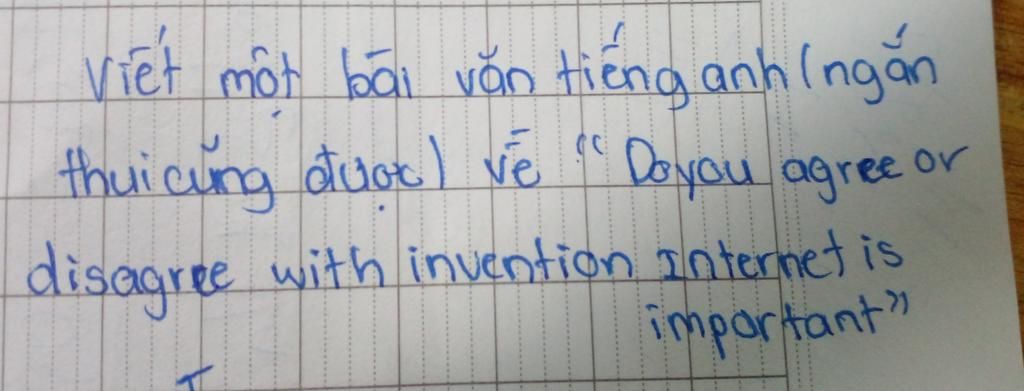 Viết một bài văn tiếng anh (ngắn
thui cũng được) về "Do you agree or
disagree with invention Internet is
important"
I